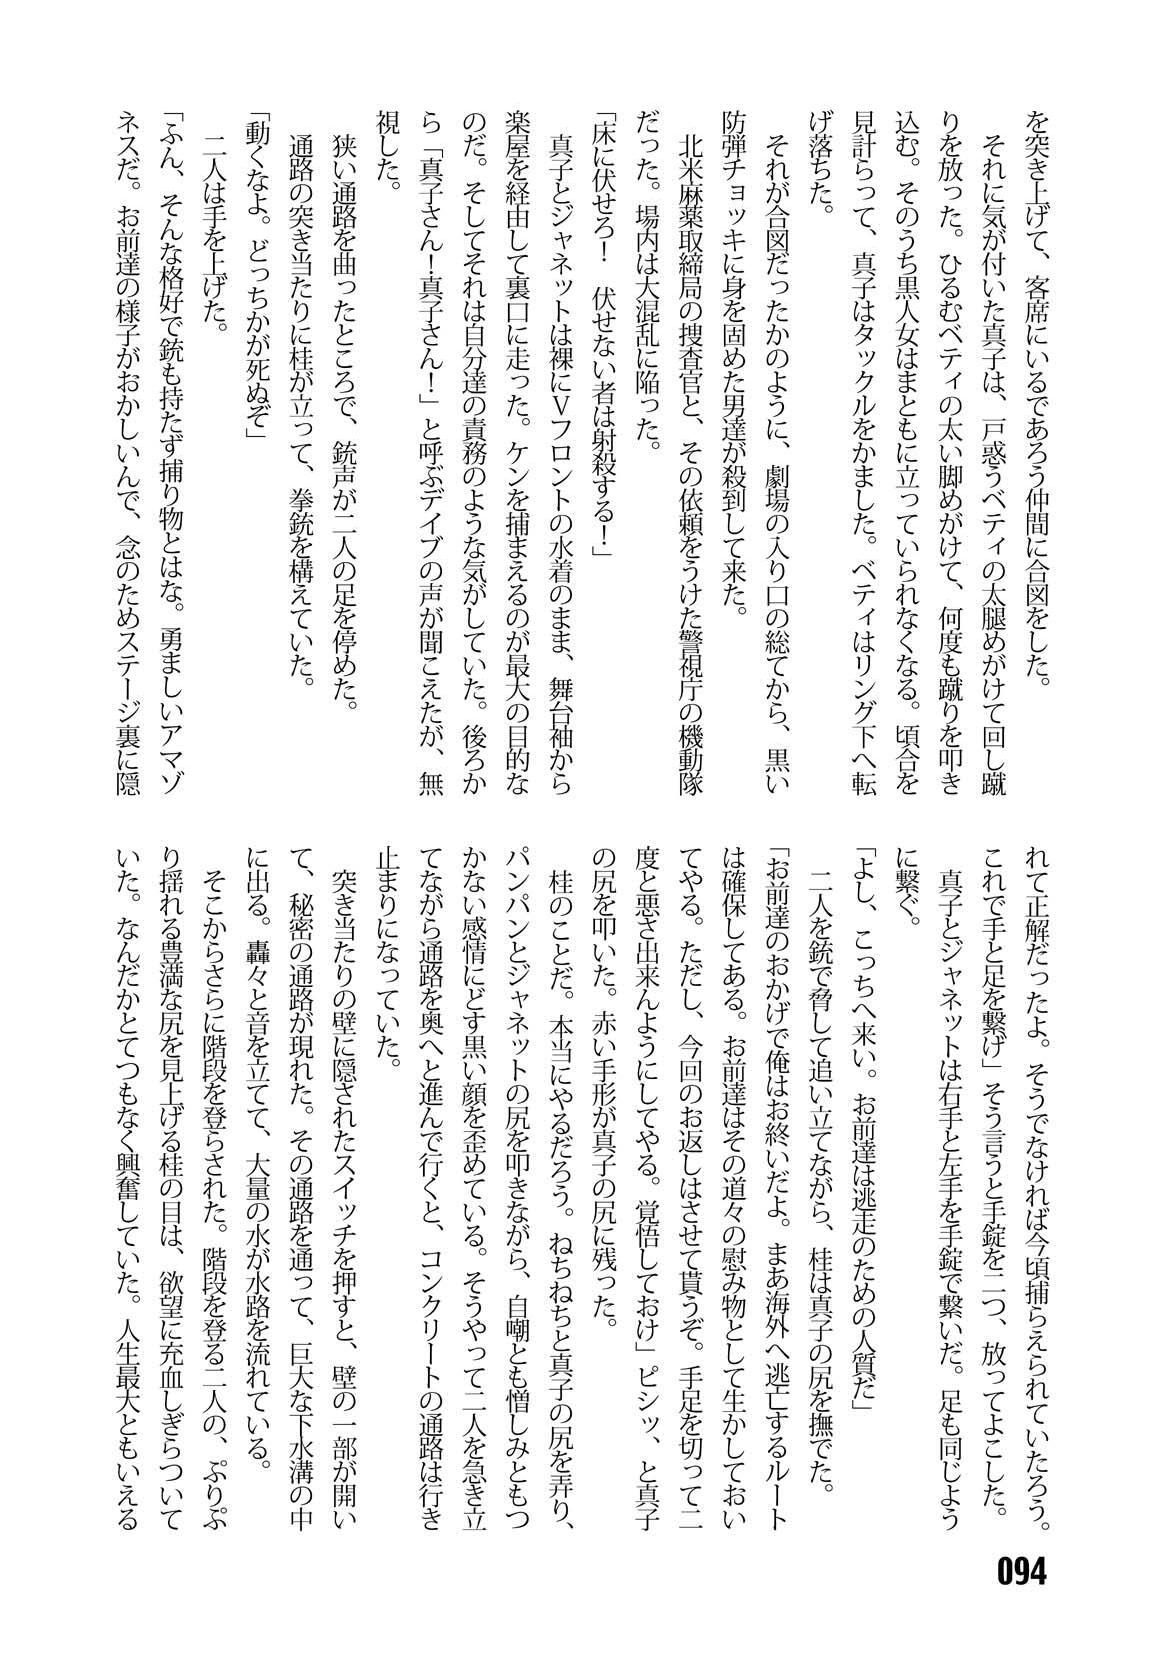 を突き上げて、客席にいるであろう仲間に合図をした。
　それに気が付いた真子は、戸惑うベティの太腿めがけて回し蹴
りを放った。ひるむベティの太い脚めがけて、何度も蹴りを叩き
込む。そのうち黒人女はまともに立っていられなくなる。頃合を
見計らって、真子はタックルをかました。ベティはリング下へ転
げ落ちた。
　それが合図だったかのように、劇場の入り口の総てから、黒い
防弾チョッキに身を固めた男達が殺到して来た。
　北米麻薬取締局の捜査官と、その依頼をうけた警視庁の機動隊
だった。場内は大混乱に陥った。
「床に伏せろ！　伏せない者は射殺する！」
　真子とジャネットは裸にＶフロントの水着のまま、舞台袖から
楽屋を経由して裏口に走った。ケンを捕まえるのが最大の目的な
のだ。そしてそれは自分達の責務のような気がしていた。後ろか
ら「真子さん！真子さん！」と呼ぶデイブの声が聞こえたが、無
視した。
　狭い通路を曲ったところで、銃声が二人の足を停めた。
　通路の突き当たりに桂が立って、拳銃を構えていた。
「動くなよ。どっちかが死ぬぞ」
　二人は手を上げた。
「ふん、そんな格好で銃も持たず捕り物とはな。勇ましいアマゾ
ネスだ。お前達の様子がおかしいんで、念のためステージ裏に隠
れて正解だったよ。そうでなければ今頃捕らえられていたろう。
これで手と足を繋げ」そう言うと手錠を二つ、放ってよこした。
　真子とジャネットは右手と左手を手錠で繋いだ。足も同じよう
に繋ぐ。
「よし、こっちへ来い。お前達は逃走のための人質だ」
　二人を銃で脅して追い立てながら、桂は真子の尻を撫でた。
「お前達のおかげで俺はお終いだよ。まあ海外へ逃亡するルート
は確保してある。お前達はその道々の慰み物として生かしておい
てやる。ただし、今回のお返しはさせて貰うぞ。手足を切って二
度と悪さ出来んようにしてやる。覚悟しておけ」ピシッ、と真子
の尻を叩いた。赤い手形が真子の尻に残った。
　桂のことだ。本当にやるだろう。ねちねちと真子の尻を弄り、
パンパンとジャネットの尻を叩きながら、自嘲とも憎しみともつ
かない感情にどす黒い顔を歪めている。そうやって二人を急き立
てながら通路を奥へと進んで行くと、コンクリートの通路は行き
止まりになっていた。
　突き当たりの壁に隠されたスイッチを押すと、壁の一部が開い
て、秘密の通路が現れた。その通路を通って、巨大な下水溝の中
に出る。轟々と音を立てて、大量の水が水路を流れている。
　そこからさらに階段を登らされた。階段を登る二人の、ぷりぷ
り揺れる豊満な尻を見上げる桂の目は、欲望に充血しぎらついて
いた。なんだかとてつもなく興奮していた。人生最大ともいえる
094